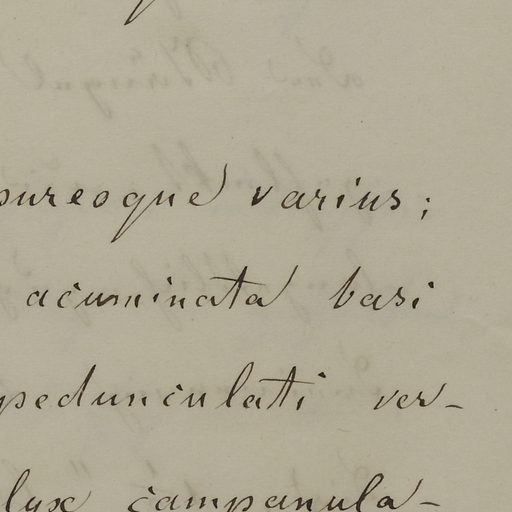 pureoque varius;
acuminata basi
pedunculati ver-
lyx campanula-